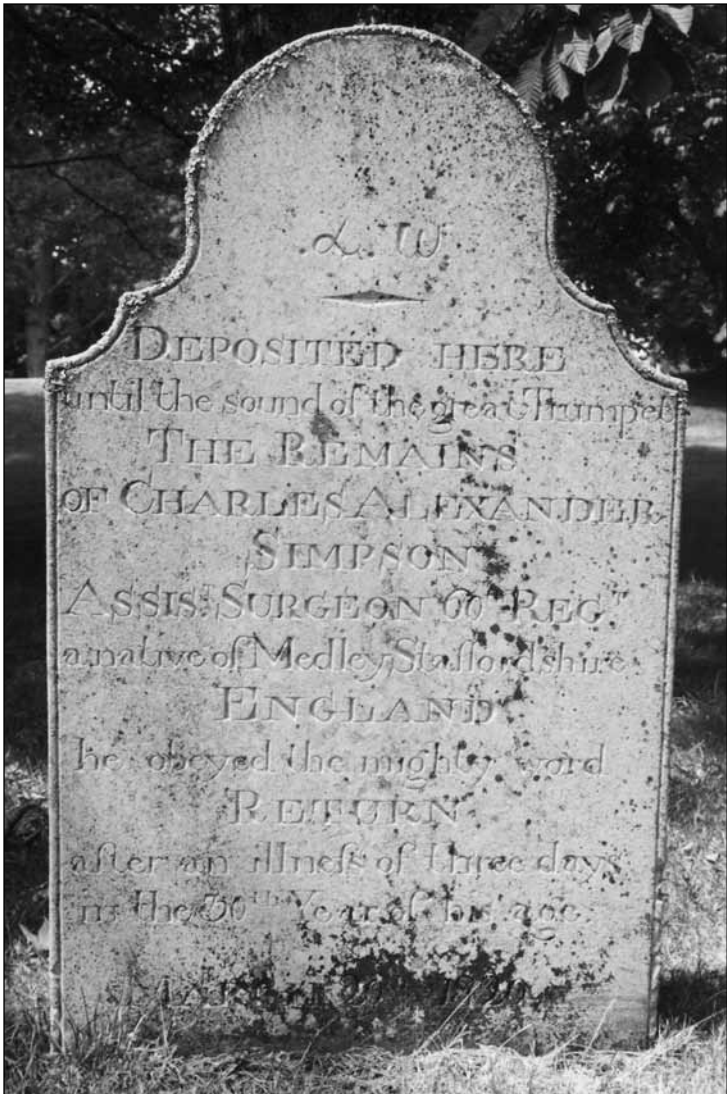 L. W
DEPOSITED HERE
until the sound of the great Trumpet
THE REMAINS
OF CHARLES ALEXANDER
SIMPSON
ASSIST. SURGEON 60th REGT
a native of Medley, Staffordshire
ENGLAND
he obeyed the mighty word
RETURN
after an illneſs of three days
in the 30th Year of his age.
MARCH